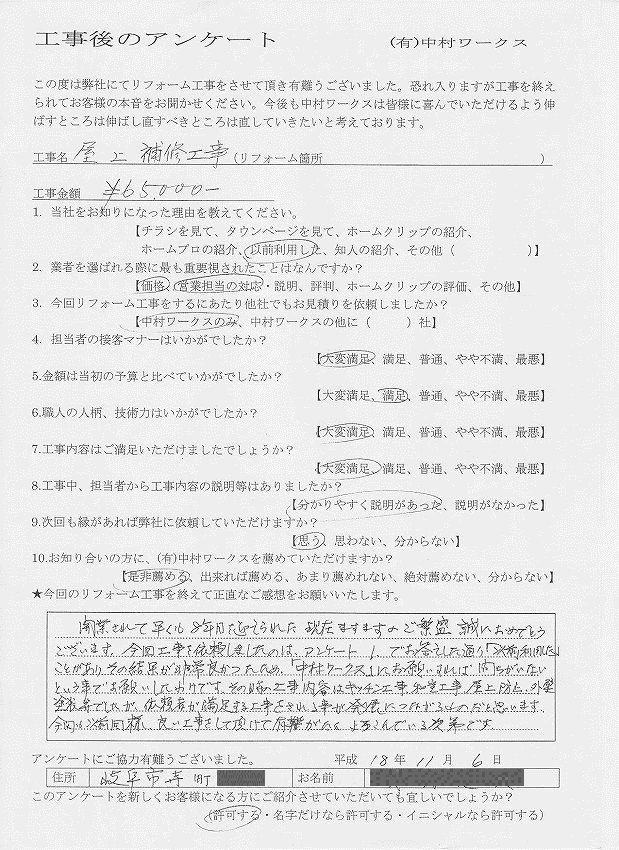 工事後のアンケート (有)中村ワークス
この度は弊社にてリフォーム工事をさせて頂き有難うございました。恐れ入りますが工事を終え
られてお客様の本音をお聞かせください。今後も中村ワークスは皆様に喜んでいただけるよう伸
ばすところは伸ばし直すべきところは直していきたいと考えております。
工事名 屋上補修工事 (リフォーム箇所 )
工事金額 ¥65,000-
1. 当社をお知りになった理由を教えてください。
【チラシを見て、タウンページを見て、ホームクリップの紹介、
ホームプロの紹介、以前利用した、知人の紹介、その他( )】
2. 業者を選ばれる際に最も重要視されたことはなんですか?
【価格、営業担当の対応・説明、評判、ホームクリップの評価、その他】
3. 今回リフォーム工事をするにあたり他社でもお見積りを依頼しましたか?
【中村ワークスのみ、中村ワークスの他に( )社】
4. 担当者の接客マナーはいかがでしたか?
【大変満足、満足、普通、やや不満、最悪】
5.金額は当初の予算と比べていかがでしたか?
【大変満足、満足、普通、やや不満、最悪】
6.職人の人柄、技術力はいかがでしたか?
【大変満足、満足、普通、やや不満、最悪】
7.工事内容はご満足いただけましたでしょうか?
【大変満足、満足、普通、やや不満、最悪】
8.工事中、担当者から工事内容の説明等はありましたか?
【分かりやすく説明があった、説明がなかった】
9.次回も縁があれば弊社に依頼していただけますか?
【思う、思わない、分からない】
10.お知り合いの方に、(有)中村ワークスを薦めていただけますか?
【是非薦める、出来れば薦める、あまり薦めれない、絶対薦めない、分からない】
★今回のリフォーム工事を終えて正直なご感想をお願いいたします。
開業されて早くも8年目を迎えられた現在ますますのご繁盛誠におめでとう
ございます。今回工事を依頼しましたのは、アンケート1.でお答えした通り「以前利用した」
ことがありその結果が非常に良かったため、「中村ワークス」にお願いすれば間ちがいない
という事でお願いしたわけです。その時の工事内容はキッチン工事、和室工事、屋上防上、外壁
塗装等でしたが、依頼者が満足する工事をされる事が発展につながるものだと思います。
今回も以前同様、良い工事をして頂けて有難がたく よろこんでいる次第です。
アンケートにご協力有難うございました。 平成 18年 11月 6日
住所 岐阜市寺町 お名前
このアンケートを新しくお客様になる方にご紹介させていただいても宜しいでしょうか?
(許可する・名字だけなら許可する・イニシャルなら許可する)